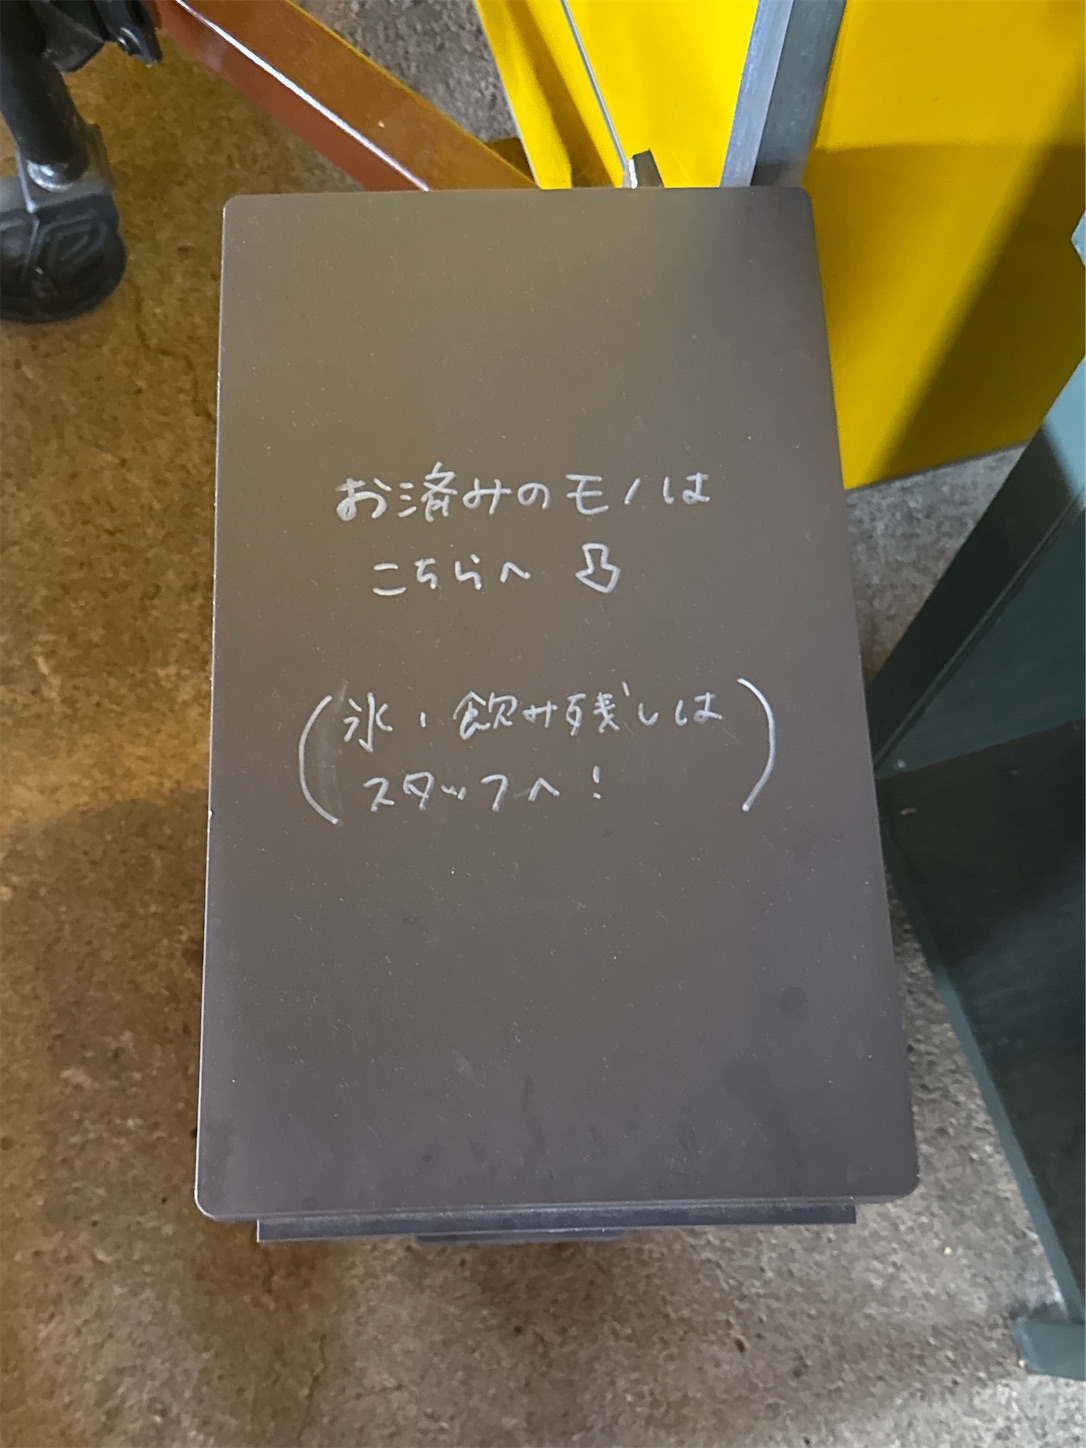 お済みのモノは
こちらへ⇩
(氷、飲み残しは
スタッフへ!)